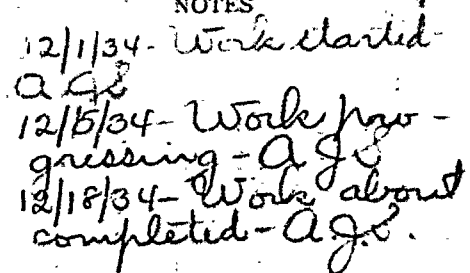 NOTES
12/1/34- Work started-
A J S
12/5/34- Work pro-
gressing-A J S
12/18/34- Work about
completed-A.J.S.